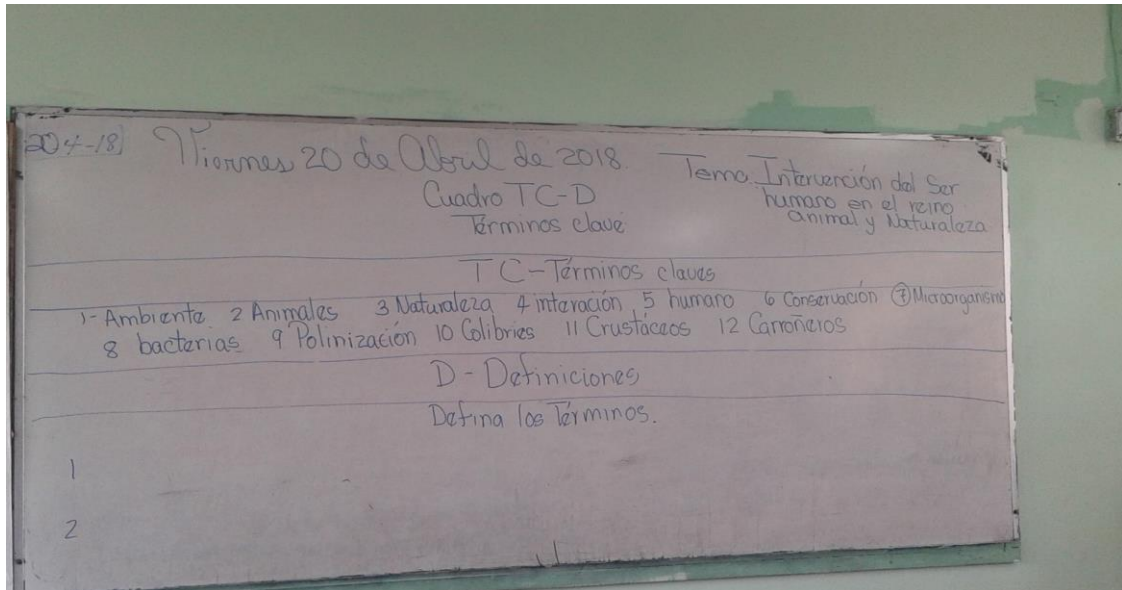 20-4-18] Viernes 20 de Abril de 2018.
Tema. Intervención del Ser
humano en el reino
animal y Naturaleza
Cuadro TC-D
Términos clave
TC-Términos claves
1- Ambiente 2 Animales 3 Naturaleza 4 interación 5 humano 6 Conservación 7 Microorganismo
8 bacterias 9 Polinización 10 Colibries 11 Crustáceos 12 Carroñeros
D - Definiciones
Defina los Términos.
1
2